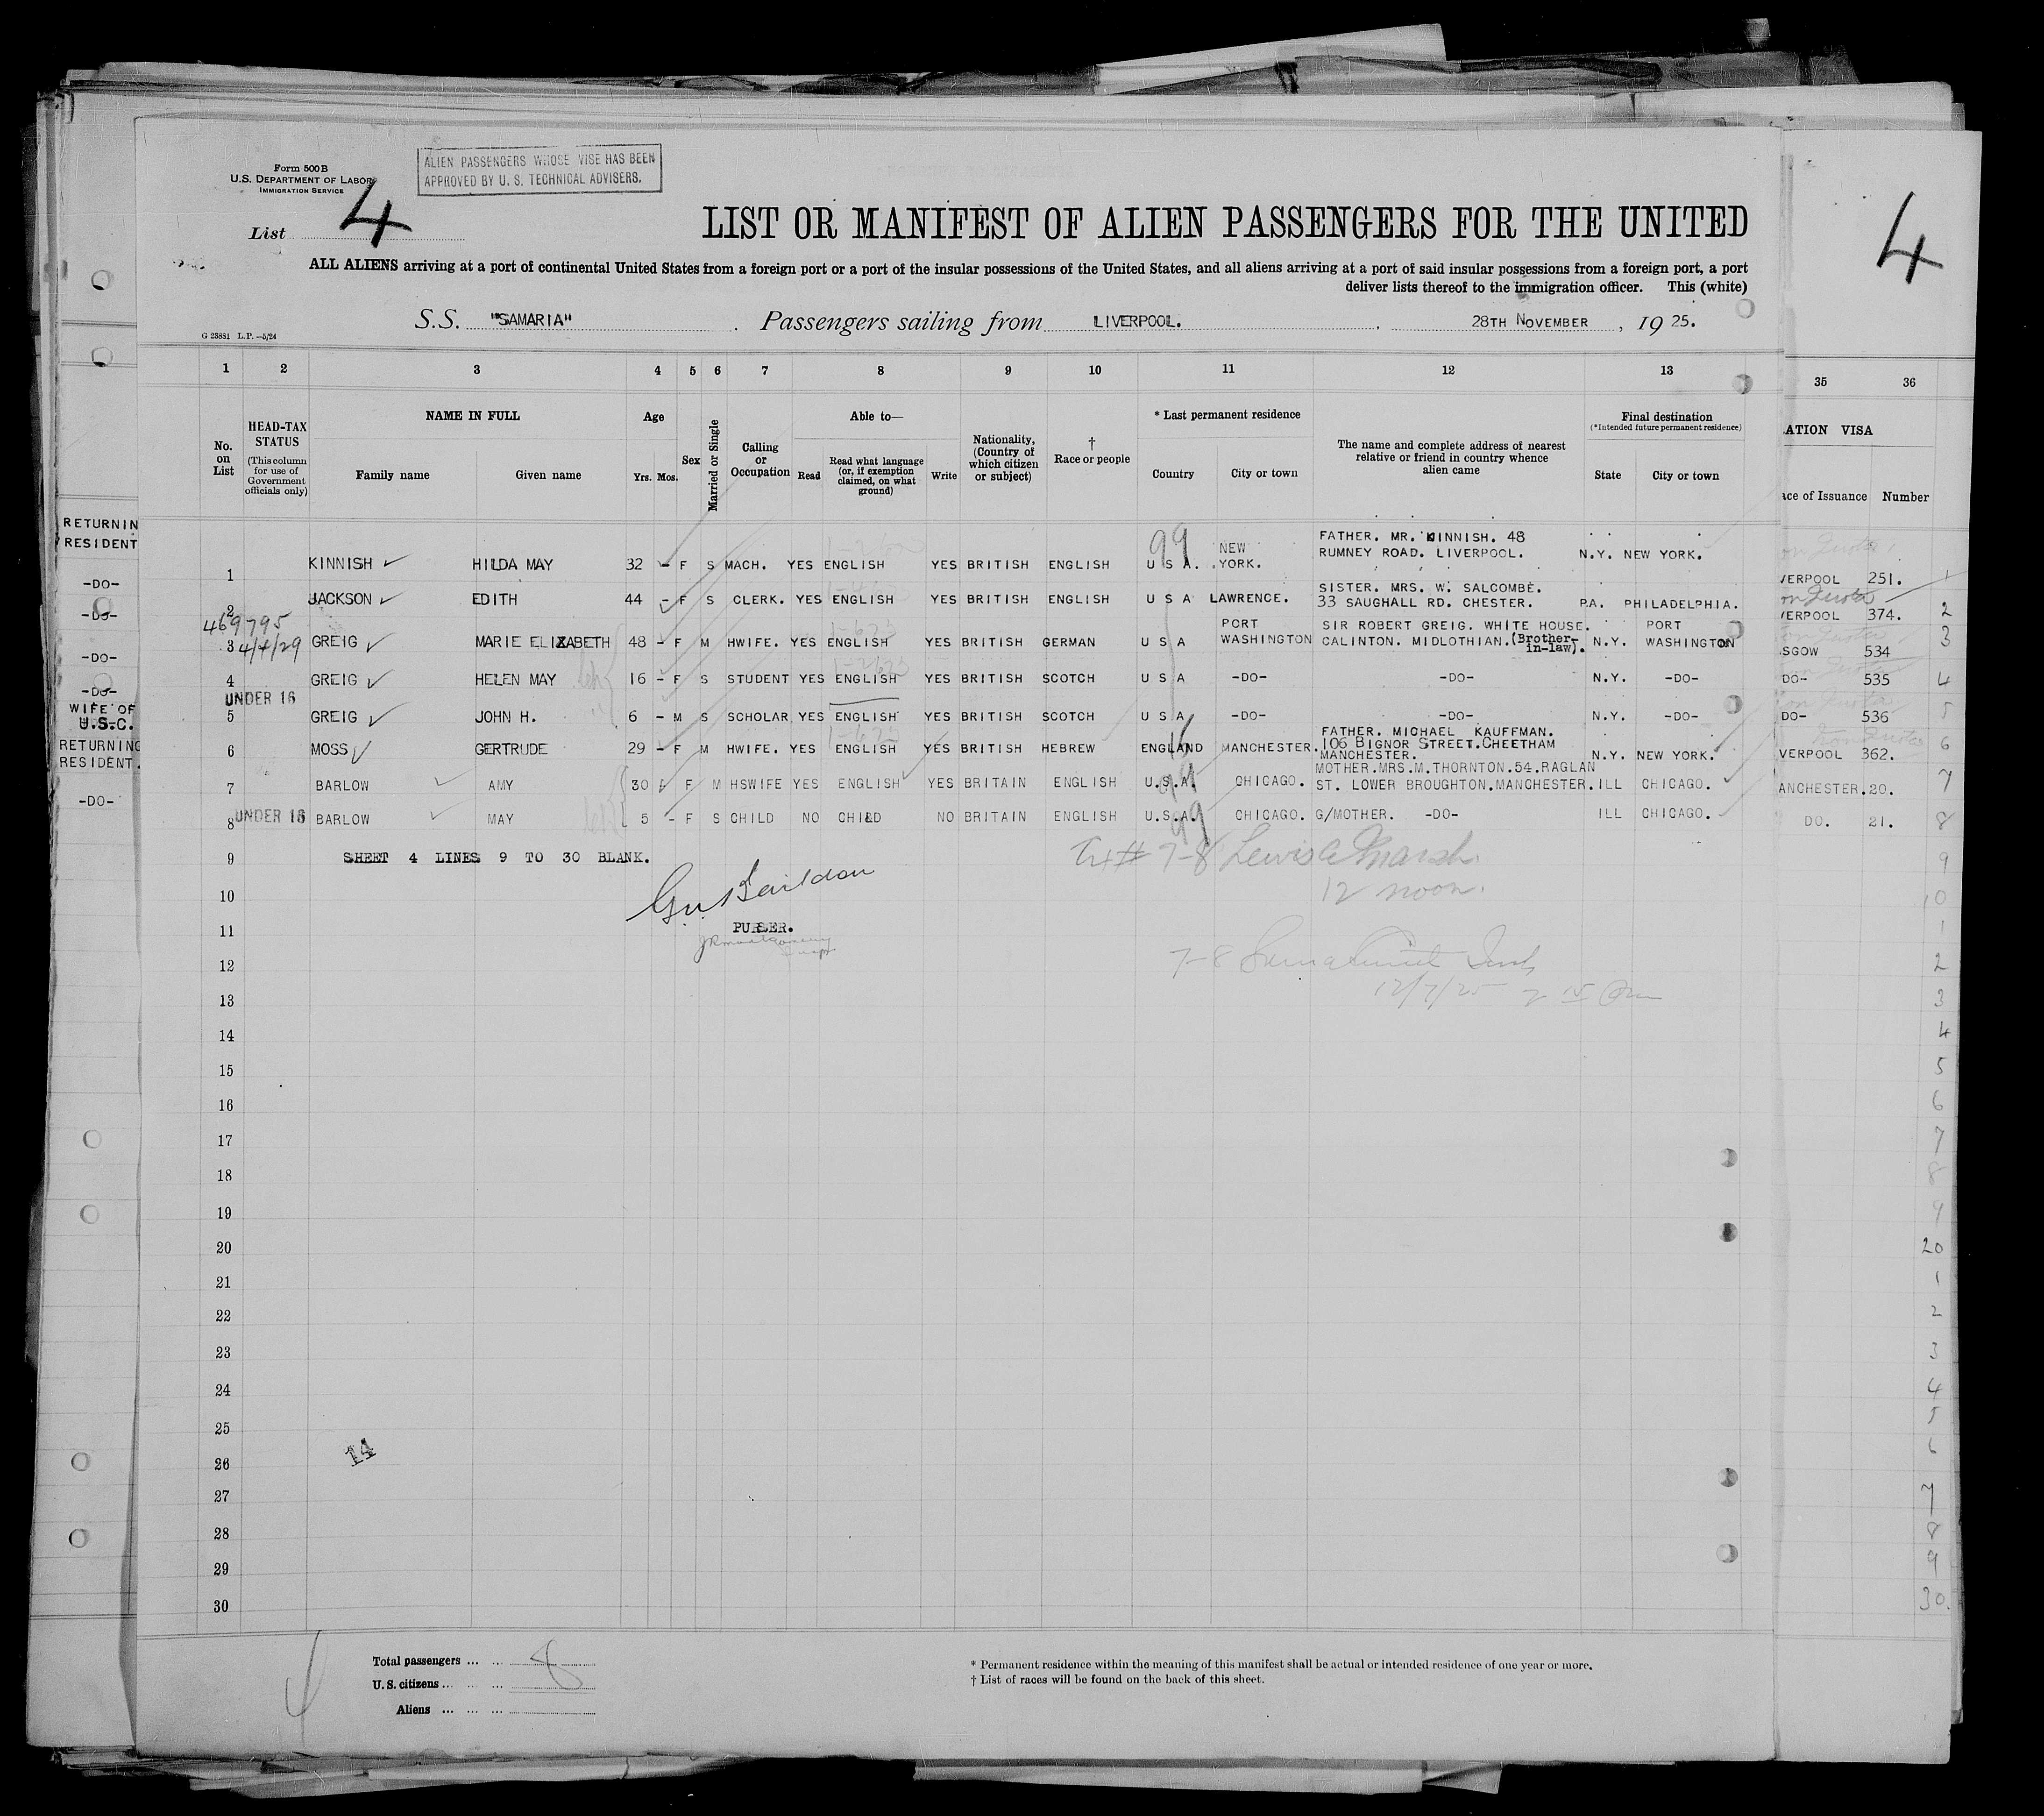 Form 500 B
U.S. DEPARTMENT OF LABOR
IMMIGRATION SERVICE
ALIEN PASSENGERS WHOSE VISE HAS BEEN
APPROVED BY U. S. TECHNICAL ADVISERS.
List 4
4
LIST OR MANIFEST OF ALIEN PASSENGERS FOR THE UNITED
ALL ALIENS arriving at a port of continental United States from a foreign port or a port of the insular possessions of the United States, and all aliens arriving at a port of said insular possessions from a foreign port, a port
deliver lists thereof to the immigration officer. This (white)
S.S. "SAMARIA" . Passengers sailing from LIVERPOOL. , 28TH NOVEMBER , 19 25.
G 23881 L.P. —5/24
1 2 3 4 5 6 7 8 9 10 11 12 13 35 36
No. on List
HEAD-TAX STATUS (This column for use of Government officials only)
NAME IN FULL Family name Given name
Age Yrs. Mos.
Sex
Married or Single
Calling or Occupation
Able to— Read Read what language (or, if exemption claimed, on what ground) Write
Nationality, (Country of which citizen or subject)
† Race or people
* Last permanent residence Country City or town
The name and complete address of nearest relative or friend in country whence alien came
Final destination (*Intended future permanent residence) State City or town
ATION VISA
ace of Issuance Number
RETURNIN
RESIDENT
99 NEW FATHER. MR. KINNISH. 48
1 KINNISH HILDA MAY 32 - F S MACH. YES ENGLISH YES BRITISH ENGLISH U S A. YORK. RUMNEY ROAD. LIVERPOOL. N.Y. NEW YORK. VERPOOL 251. 1
-DO-
SISTER. MRS. W. SALCOMBE.
2 JACKSON EDITH 44 - F S CLERK. YES ENGLISH YES BRITISH ENGLISH U S A LAWRENCE. 33 SAUGHALL RD. CHESTER. PA. PHILADELPHIA. VERPOOL 374. 2
-DO-
469795 PORT SIR ROBERT GREIG. WHITE HOUSE. PORT
3 4/4/29 GREIG MARIE ELIZABETH 48 - F M HWIFE. YES ENGLISH YES BRITISH GERMAN U S A WASHINGTON CALINTON. MIDLOTHIAN.(Brother-in-law). N.Y. WASHINGTON SGOW 534 3
-DO-
4 GREIG HELEN MAY 16 - F S STUDENT YES ENGLISH YES BRITISH SCOTCH U S A -DO- -DO- N.Y. -DO- DO- 535 4
-DO- UNDER 16
5 GREIG JOHN H. 6 - M S SCHOLAR. YES ENGLISH YES BRITISH SCOTCH U S A -DO- -DO- N.Y. -DO- DO- 536 5
WIFE OF
U.S.C.
FATHER. MICHAEL KAUFFMAN.
6 MOSS GERTRUDE 29 - F M HWIFE. YES ENGLISH YES BRITISH HEBREW ENGLAND MANCHESTER. 106 BIGNOR STREET.CHEETHAM MANCHESTER. N.Y. NEW YORK. VERPOOL 362. 6
RETURNING
RESIDENT.
99 MOTHER.MRS.M.THORNTON.54.RAGLAN
7 BARLOW AMY 30 F M HSWIFE YES ENGLISH YES BRITAIN ENGLISH U.S.A. CHICAGO. ST. LOWER BROUGHTON.MANCHESTER. ILL CHICAGO. ANCHESTER.20. 7
-DO-
8 UNDER 16 BARLOW MAY 5 - F S CHILD NO CHILD NO BRITAIN ENGLISH U.S.A. 99 CHICAGO. G/MOTHER. -DO- ILL CHICAGO. DO. 21. 8
9 SHEET 4 LINES 9 TO 30 BLANK. 7-8 9
12 noon.
10 10
11 PURSER. 1
12 7-8 2
12/7/25
13 3
14 4
15 5
16 6
17 7
18 8
19 9
20 20
21 1
22 2
23 3
24 4
25 5
14
26 6
27 7
28 8
29 9
30 30.
Total passengers ... ... 8
U. S. citizens ... ... ...
Aliens ... ... ...
* Permanent residence within the meaning of this manifest shall be actual or intended residence of one year or more.
† List of races will be found on the back of this sheet.